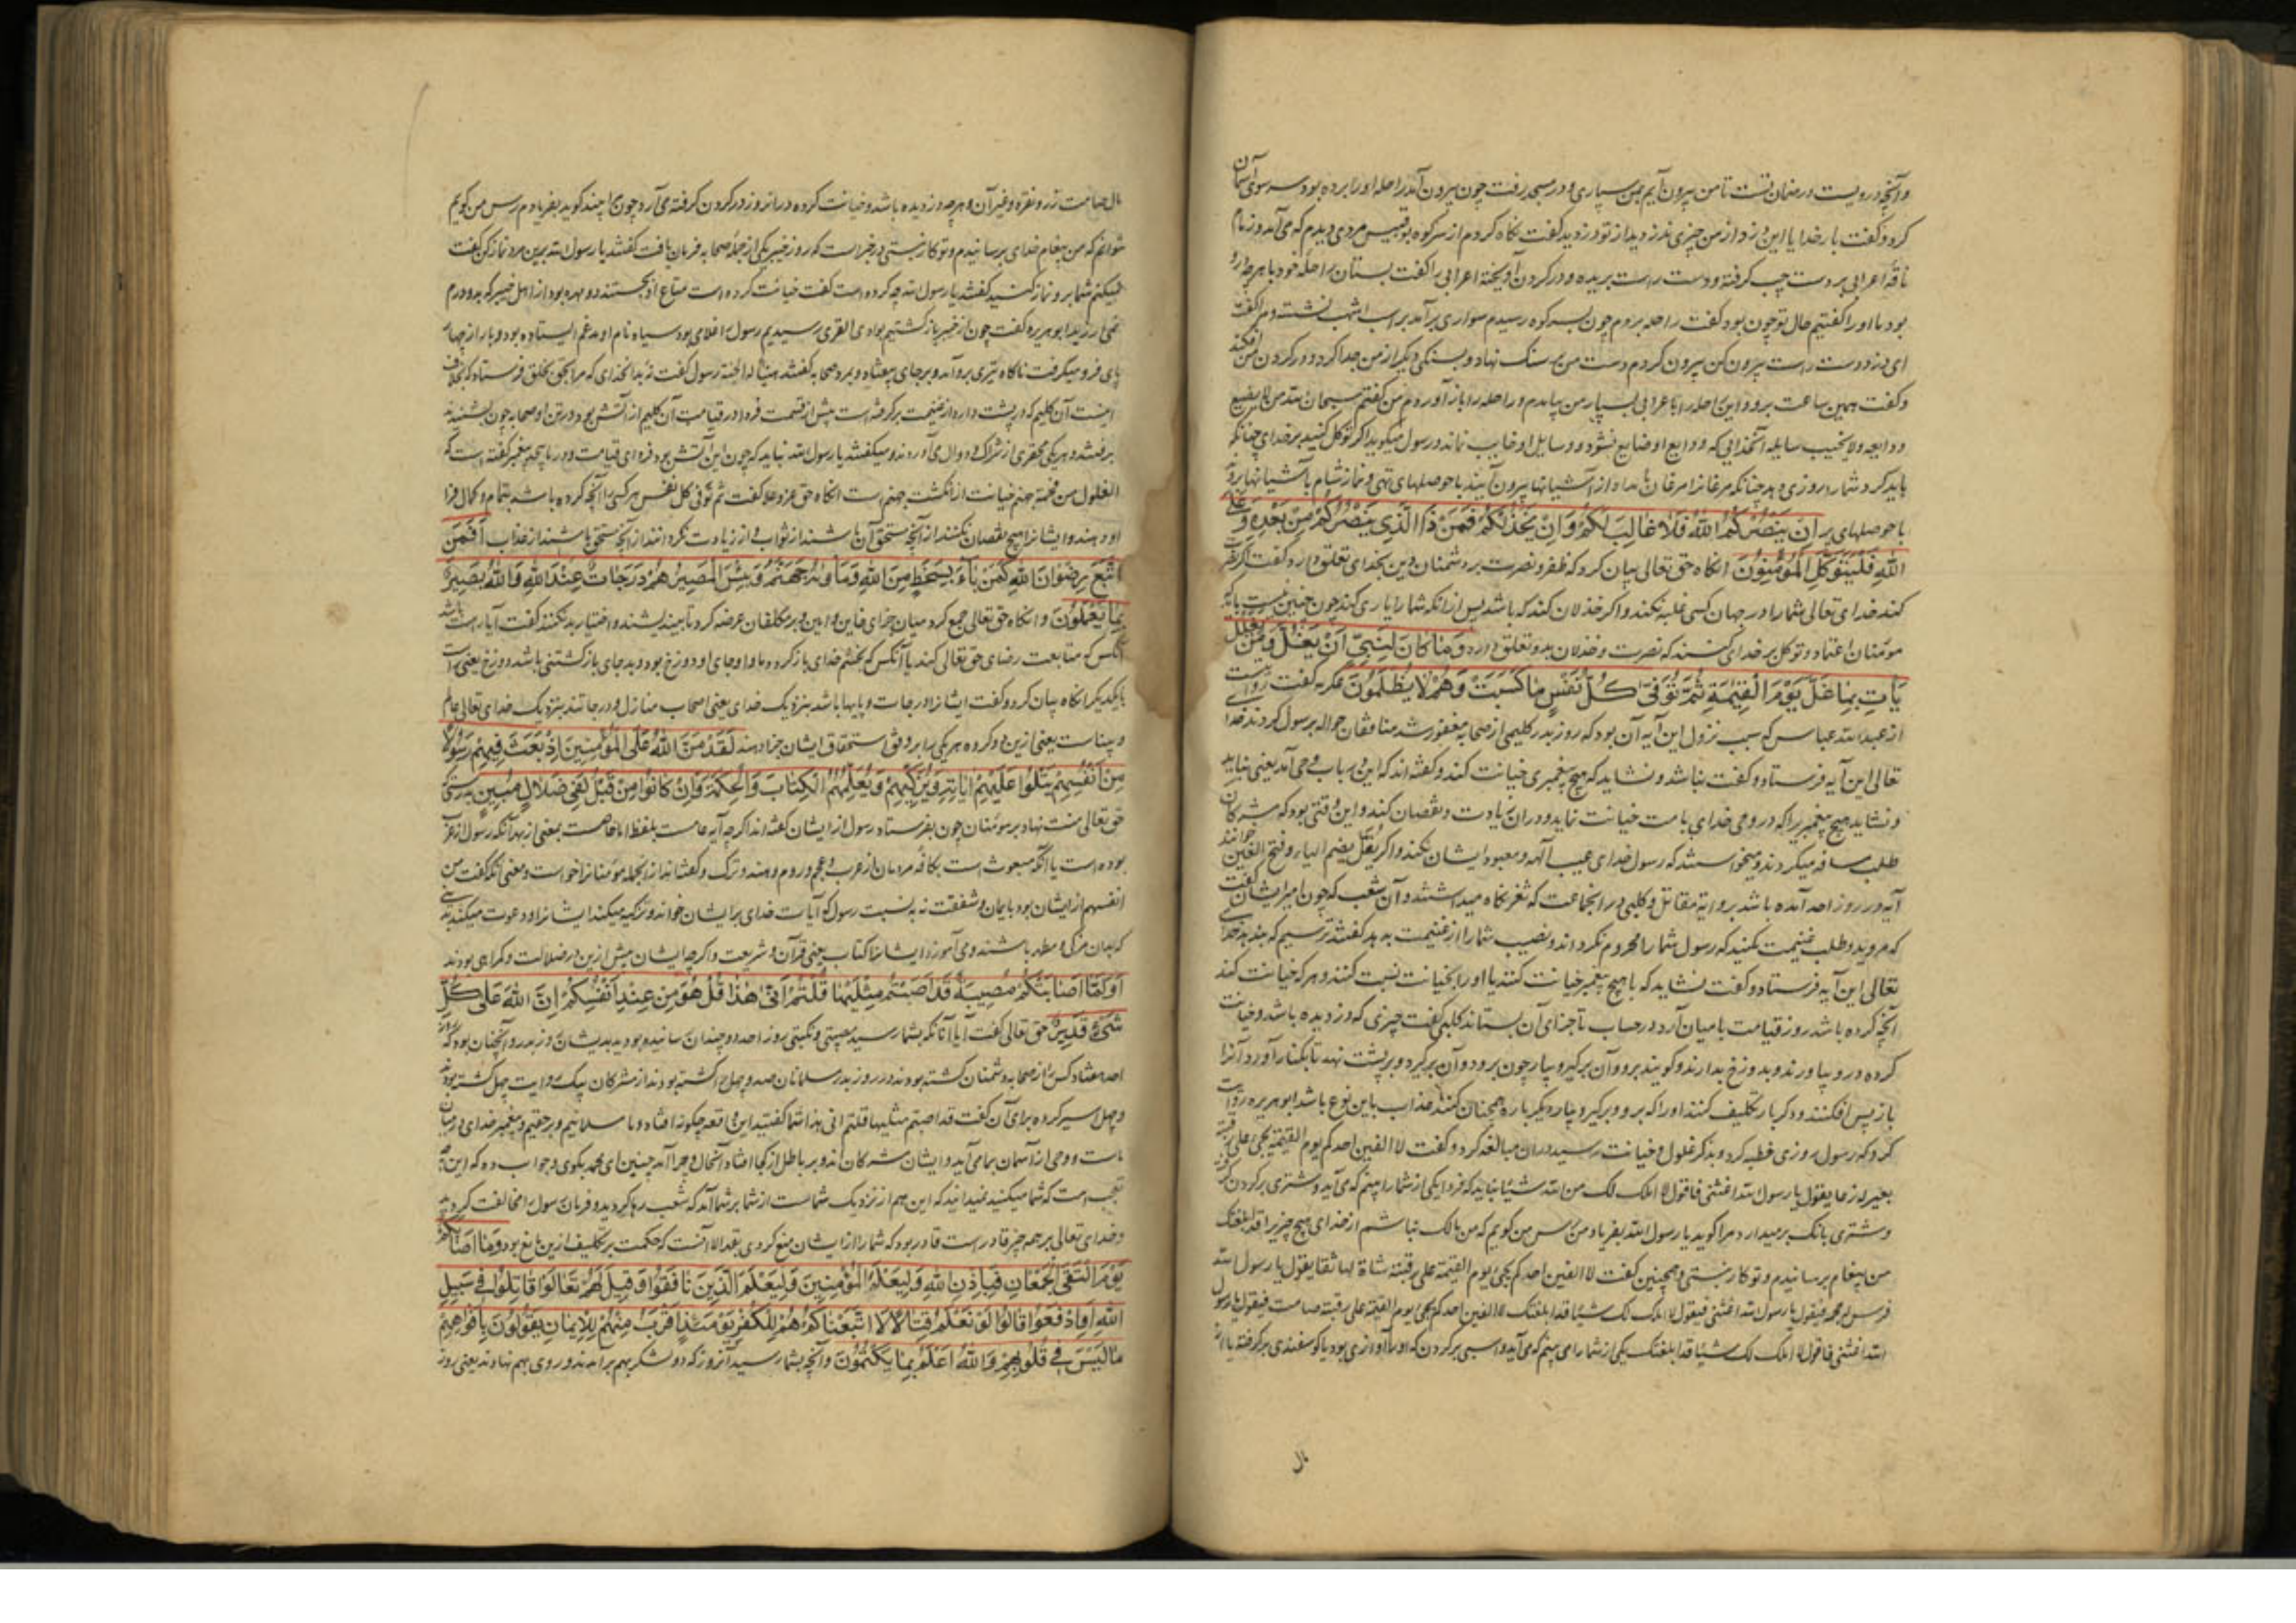 و آنچه درویست در ضمان تست تا من بیرون آیم بمن سپاری و در مسجد رفت چون بیرون آمد راحله او را برده بود سر سوی آسمان
کرد و گفت بار خدایا این دزد از من چیزی ندزدید از تو دزدید گفت نگاه کردم از سر کوه بوقبیس مردی دیدم که می آمد و زمام
ناقه اعرابی بر دست چپ گرفته و دست راست بریده و در گردن آویخته اعرابی را گفت بستان راحله خود با هر چه درو
بود ما او را گفتیم حال تو چون بود گفت راحله بردم چون بسر کوه رسیدم سواری بر آمد بر اسب اشهب نشسته و مرا گفت
ای دزد دست راست بیرون کن بیرون کردم دست من بر سنک نهاد و بسنکی دیگر از من جدا کرد و در گردن من افکند
و گفت همین ساعت برو و این راحله را با عرابی بسپار من بیامدم و راحله را باز آوردم من گفتم سبحان الله من لا یضیع
ودایعه ولا یخیب سایله آنخدایی که ودایع او ضایع نشود و سایل او خایب نماند و رسول میگوید اگر توکل کنید بر خدای چنانکه
باید کرد شما را روزی دهد چنانکه مرغانرا مرغان بامداد از آشیانها بیرون آیند با حوصلهای تهی و نماز شام بآشیانها روند
با حوصلهای پر اِن یَنصُرکُمُ اللهُ فَلا غالِبَ لَکُم وَاِن یَخذُلکُم فَمَن ذَا الَّذی یَنصُرُکُم مِن بَعدِهِ وَعَلَی
اللهِ فَلیَتَوَکَّلِ المُؤمِنُونَ انکاه حق تعالی بیان کرد که ظفر و نصرت بر دشمنان دین بخدای تعلق دارد گفت اگر نصرت
کند خدای تعالی شما را در جهان کسی غلبه نکند و اگر خذلان کند که باشد پس از انکه شما را یاری کند چون چنین است باید که
مؤمنان اعتماد و توکل بر خدای کنند که نصرت و خذلان بدو تعلق دارد وَما کانَ لِنَبِیٍّ اَن یَغُلَّ وَمَن یَغلُل
یَأتِ بِما غَلَّ یَومَ القِیمَةِ ثُمَّ تُوَفّی کُلُّ نَفسٍ ما کَسَبَت وَهُم لا یُظلَمُونَ عکرمه گفت روایت است
از عبدالله عباس که سبب نزول این آیه آن بود که روز بدر کلیمی از صحابه مفقود شد منافقان حواله برسول کردند خدا
تعالی این آیه فرستاد و گفت نباشد و نشاید که هیچ پیغمبری خیانت کند و گفته اند که این در باب وحی آمد یعنی نباید
و نشاید هیچ پیغمبر را که در وحی خدای با مت خیانت نماید و در ان زیادت و نقصان کند و این وقتی بود که مشرکان
طلب میکردند و میخواستند که رسول خدای عیب آلهه و معبود ایشان نکند و اگر یُغَلَّ بضم الیاء و فتح الغین خوانند
آیه در روز احد آمده باشد بروایة مقاتل و کلبی در انجماعت که ثغر نکاه میداشتند و آن شعب که چون امیر ایشان گفت
که مروید و طلب غنیمت مکنید که رسول شما را محروم نکرداند و نصیب شما را از غنیمت بدهد گفتند ترسیم که ندهد خدای
تعالی این آیه فرستاد و گفت نشاید که با هیچ پیغمبر خیانت کنند یا او را بخیانت نسبت کنند و هر که خیانت کند
آنچه کرده باشد روز قیامت با میان آرد در حساب تا جزای آن بستاند کلبی گفت چیزی که دزدیده باشد و خیانت
کرده درو بیاورند و بدوزخ بدارند و گویند برو و آن برگیر و بیار چون برود و آن برگیرد و بر پشت نهد تا بکنار آورد آنرا
باز پس افکنند و دکر بار تکلیف کنند او را که برو و برگیر و بیار دیگر باره همچنان کنند عذاب باین نوع باشد ابو هریره روایت
کرد که رسول روزی خطبه کرد و بذکر غلول و خیانت رسید در ان مبالغه کرد و گفت لا الفین احدکم یوم القیمة یجئ علی رقبته
بعیر له رغا یقول یا رسول الله اغثنی فاقول لا املک لک من الله شیئا نباید که فردا یکی از شما را بینم که می آید و شتری بر گردن گرفته
و شتری بانک بر میدارد مرا گوید یا رسول الله بفریاد من رس من گویم که من مالک نباشم از خدای هیچ چیز را قد ابلغتک
من پیغام برسانیدم و تو کار نبستی و همچنین گفت لا الفین احدکم یجئ یوم القیمة علی رقبته شاة لها ثغا یقول یا رسول الله
فرس له حمحمه فیقول یا رسول الله اغثنی فیقول لا املک لک شیئا قد ابلغتک لا الفین احدکم یجئ یوم القیمة علی رقبته صامت فیقول یا رسول
الله اغثنی فاقول لا املک لک شیئا قد ابلغتک یکی از شما را می بینم که می آید و اسبی بر گردن که او را آوازی بود یا گوسفندی بر گرفته یا از
مال
مال صامت زر و نقره و غیر آن و هر چه دزدیده باشد و خیانت کرده در انروز در گردن گرفته می آرد چون مرا بیند گوید بفریادم رس من گویم
نتوانم که من پیغام خدای برسانیدم و تو کار نبستی در خبر است که روز خیبر یکی از جمله صحابه فرمان یافت گفتند یا رسول الله برین مرد نماز کن گفت
نمیکنم شما برو نماز کنید گفتند یا رسول الله چه کرده است گفت خیانت کرده است متاع او بجستند دو مهره بود از اهل خیبر که بدو درم
نمی ارزید ابو هریره گفت چون از خیبر باز گشتیم بوادی القری رسیدیم رسول را غلامی بود سیاه نام او مدغم ایستاده بود و بار از چهار
پای فرو میگرفت ناکاه تیری برو آمد و بر جای بیفتاد و بمرد صحابه گفتند هنیئا له الجنة رسول گفت نه بدانخدای که مرا بحق بخلق فرستاد که بخلاف
اینست آن گلیم که در پشت دارد از غنیمت بر گرفته است پیش از قسمت فردا در قیامت آن گلیم از آتش بود در تن او صحابه چون بشنیدند
برفتند و هر یکی محقری از شراک و دوال می آوردند و میگفتند یا رسول الله نباید که چون این آتش بود فردای قیامت و در باب پیغمبر گفته است که
الغلول من جمر جهنم خیانت از انکشت جهنم است انکاه حق عز و علا گفت ثم توفی کل نفس هر کسی را آنچه کرده باشد بتمام و کمال فرا
او دهند و ایشانرا هیچ نقصان نکنند از آنچه مستحق آن باشند از ثواب و از زیادت نگردانند از آنچه مستحق باشند از عذاب اَفَمَنِ
اتَّبَعَ رِضوانَ اللهِ کَمَن باءَ بِسَخَطٍ مِنَ اللهِ وَمَأویهُ جَهَنَّمُ وَبِئسَ المَصیرُ هُم دَرَجاتٌ عِندَ اللهِ وَاللهُ بَصیرٌ
بِما یَعمَلُونَ و انکاه حق تعالی جمع کرد میان جزای خاین و امین و بر مکلفان عرضه کرد تا بیندیشند و اختیار بد نکنند گفت آیا راست باشد
آنکس که متابعت رضای حق تعالی کند با آنکس که بخشم خدای باز گردد و ماوا و جای او دوزخ بود و بد جای بازگشتنی باشد دوزخ یعنی راست
با یکدیگر انکاه بیان کرد و گفت ایشانرا درجات و پایها باشد بنزدیک خدای یعنی اصحاب منازل و درجاتند بنزدیک خدای تعالی عالم
و بیناست یعنی ازین دو گروه هر یکی را بر وفق استحقاق ایشان جزا دهند لَقَد مَنَّ اللهُ عَلَی المُؤمِنینَ اِذ بَعَثَ فیهِم رَسُولًا
مِن اَنفُسِهِم یَتلُوا عَلَیهِم ایاتِهِ وَیُزَکّیهِم وَیُعَلِّمُهُمُ الکِتابَ وَالحِکمَةَ وَاِن کانُوا مِن قَبلُ لَفی ضَلالٍ مُبینٍ بدرستی که
حق تعالی منت نهاد بر مؤمنان چون بفرستاد رسول از ایشان گفته اند اگر چه آیه عامست بلفظ اما خاصست بمعنی از بهر آنکه رسول از عرب
بوده است یا آنکه مبعوث است بکافه مردمان از عرب و عجم و روم و هند و ترک و گفته اند از انجمله مؤمنانرا خواست و معنی آنکه گفت من
انفسهم از ایشان بود بایمان و شفقت نه به نسبت رسول که آیات خدای بر ایشان خواند و تزکیه میکند ایشانرا و دعوت میکند
که بدان مزکی و مطهر باشند و می آموزد ایشانرا کتاب یعنی قرآن و شریعت و اگر چه ایشان پیش ازین در ضلالت و گمراهی بودند
اَوَلَمّا اَصابَتکُم مُصیبَةٌ قَد اَصَبتُم مِثلَیها قُلتُم اَنّی هذا قُل هُوَ مِن عِندِ اَنفُسِکُم اِنَّ اللهَ عَلی کُلِّ
شَیءٍ قَدیرٌ حق تعالی گفت آیا آنانکه بشما رسید مصیبتی و نکبتی روز احد دو چندان رسانیده بودید بدیشان روز بدر و آنچنان بود که روز
احد هفتاد کس را از صحابه دشمنان کشته بودند و در روز بدر مسلمانان صد و چهل را کشته بودند از مشرکان بیک روایت چهل کشته بودند
و چهل اسیر کرده برای آن گفت قد اصبتم مثلیها قلتم انی هذا شما گفتید این واقعه چگونه افتاد و ما مسلمانیم و بر حقیم و پیغمبر خدای در میان
ماست و وحی از آسمان بما می آید و ایشان مشرکان اند و بر باطل از کجا افتاد آنحال و چرا آمد چنین ای محمد بگوی و جواب ده که این
تعجب است که شما میکنید نمیدانید که این هم از نزدیک شماست از شما بر شما آمد که شعب رها کردید و فرمان رسول را مخالفت کردید
و خدای تعالی بر همه چیز قادر است قادر بود که شما را از ایشان منع کردی بقدر الا آنست که حکمت بر تکلیف ازین مانع بود وَما اَصابَکُم
یَومَ التَقَی الجَمعانِ فَبِاِذنِ اللهِ وَلِیَعلَمَ المُؤمِنینَ وَلِیَعلَمَ الَّذینَ نافَقُوا وَقیلَ لَهُم تَعالَوا قاتِلُوا فی سَبیلِ
اللهِ اَوِ ادفَعُوا قالُوا لَو نَعلَمُ قِتالًا لَاتَّبَعناکُم هُم لِلکُفرِ یَومَئِذٍ اَقرَبُ مِنهُم لِلایمانِ یَقُولُونَ بِاَفواهِهِم
ما لَیسَ فی قُلُوبِهِم وَاللهُ اَعلَمُ بِما یَکتُمُونَ و آنچه بشما رسید آنروز که دو لشکر بهم بر آمدند و روی بهم نهادند یعنی روز